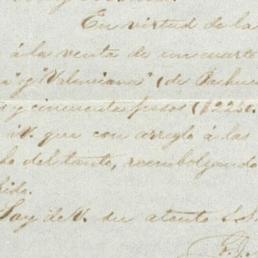 En virtud de la
á la venta de un cuarto
" y "Valenciana" (de Pachuc
s y cincuenta pesos ($2250.
V. que con arreglo á las
del tanto, reembolzando
Soy de V. su atento S. S.
F. J.